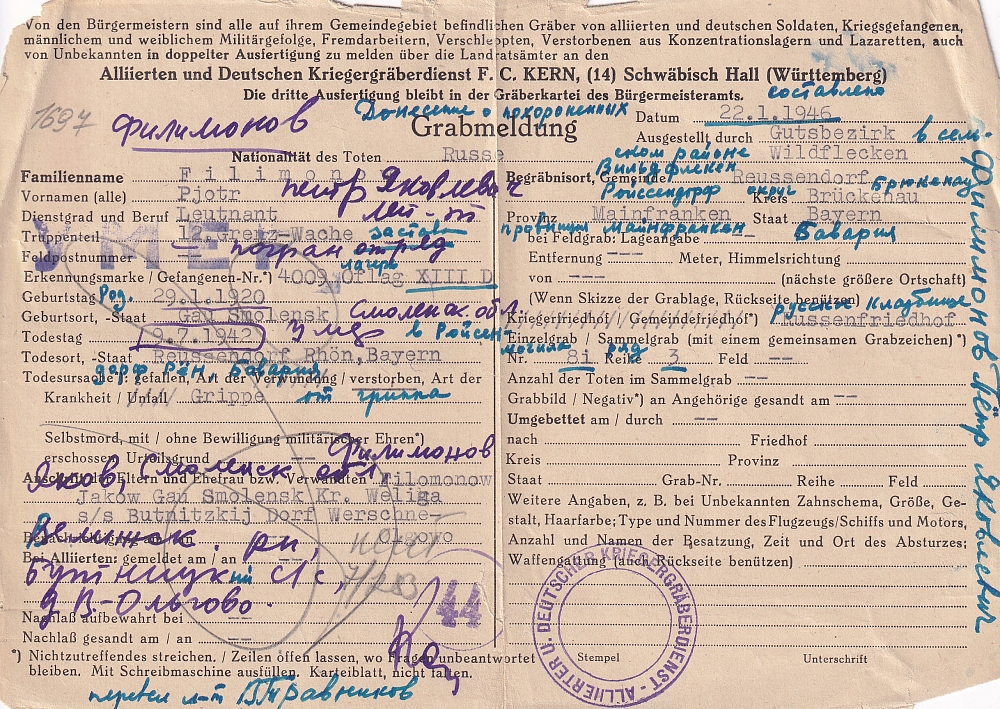 Von den Bürgermeistern sind alle auf ihrem Gemeindegebiet befindlichen Gräber von alliierten und deutschen Soldaten, Kriegsgefangenen,
männlichem und weiblichem Militärgefolge, Fremdarbeitern, Verschleppten, Verstorbenen aus Konzentrationslagern und Lazaretten, auch
von Unbekannten in doppelter Ausfertigung zu melden über die Landratsämter an den
Alliierten und Deutschen Kriegergräberdienst F. C. KERN, (14) Schwäbisch Hall (Württemberg)
Die dritte Ausfertigung bleibt in der Gräberkartei des Bürgermeisteramts.
составлено
1697
Филимонов
Донесение о похороненных
Grabmeldung
Nationalität des Toten Russe
Familienname Filimonow
Vornamen (alle) Pjotr
Петр Яковлевич
Dienstgrad und Beruf Leutnant
лей-т
Truppenteil 12.Grenz-Wache
застав
Feldpostnummer --
погран отряд
УМЕР
лагерь
Erkennungsmarke / Gefangenen-Nr.*) 4009 Oflag XIII D
Geburtstag 29.1.1920
Род.
Geburtsort, -Staat Gau Smolensk
Смоленск. обл
Todestag 9.7.1942
умер
в Ройсен
Todesort, -Staat Reussendorf Rhön,Bayern
дорф Рён, Бавария
Todesursache*): gefallen, Art der Verwundung / verstorben, Art der
Krankheit / Unfall Grippe
от гриппа
Selbstmord, mit / ohne Bewilligung militärischer Ehren*)
erschossen Urteilsgrund --
Филимонов
Яков, Смоленск. обл
Anschrift der Eltern und Ehefrau bzw. Verwandten Filomonow
Jakow Gau Smolensk Kr. Weliga
s/s Butnitzkij Dorf Werschne-
Olgowo
Велижск. р-н,
Bei Alliierten: gemeldet am / an
Бутницкий с/с,
д В-Ольгово.
Nachlaß aufbewahrt bei --
Nachlaß gesandt am / an --
44
*) Nichtzutreffendes streichen. / Zeilen offen lassen, wo Fragen unbeantwortet
bleiben. Mit Schreibmaschine ausfüllen. Karteiblatt, nicht falten.
перевел л-т В.Травников
Datum 22.1.1946
Ausgestellt durch Gutsbezirk
Wildflecken
в сель-
ском районе
Вильдфлекен
Begräbnisort, Gemeinde Reussendorf
Ройссендорф
округ
Брюкенау
Kreis Brückenau
Provinz Mainfranken Staat Bayern
провинция Майнфранкен
Бавария
bei Feldgrab: Lageangabe ---
Entfernung --- Meter, Himmelsrichtung
von --- (nächste größere Ortschaft)
(Wenn Skizze der Grablage, Rückseite benützen)
русское кладбище
Kriegerfriedhof / Gemeindefriedhof*) Russenfriedhof
Einzelgrab / Sammelgrab (mit einem gemeinsamen Grabzeichen)*)
могила
ряд
Nr. 81 Reihe 3 Feld --
Anzahl der Toten im Sammelgrab --
Grabbild / Negativ*) an Angehörige gesandt am --
Umgebettet am / durch --
nach Friedhof
Kreis Provinz
Staat Grab-Nr. Reihe Feld
Weitere Angaben, z. B. bei Unbekannten Zahnschema, Größe, Ge-
stalt, Haarfarbe; Type und Nummer des Flugzeugs/Schiffs und Motors,
Anzahl und Namen der Besatzung, Zeit und Ort des Absturzes;
Waffengattung (auch Rückseite benützen)
Stempel Unterschrift
ALLIIERTER U. DEUTSCHER KRIEGERGRÄBERDIENST
Филимонов Пётр Яковлевич